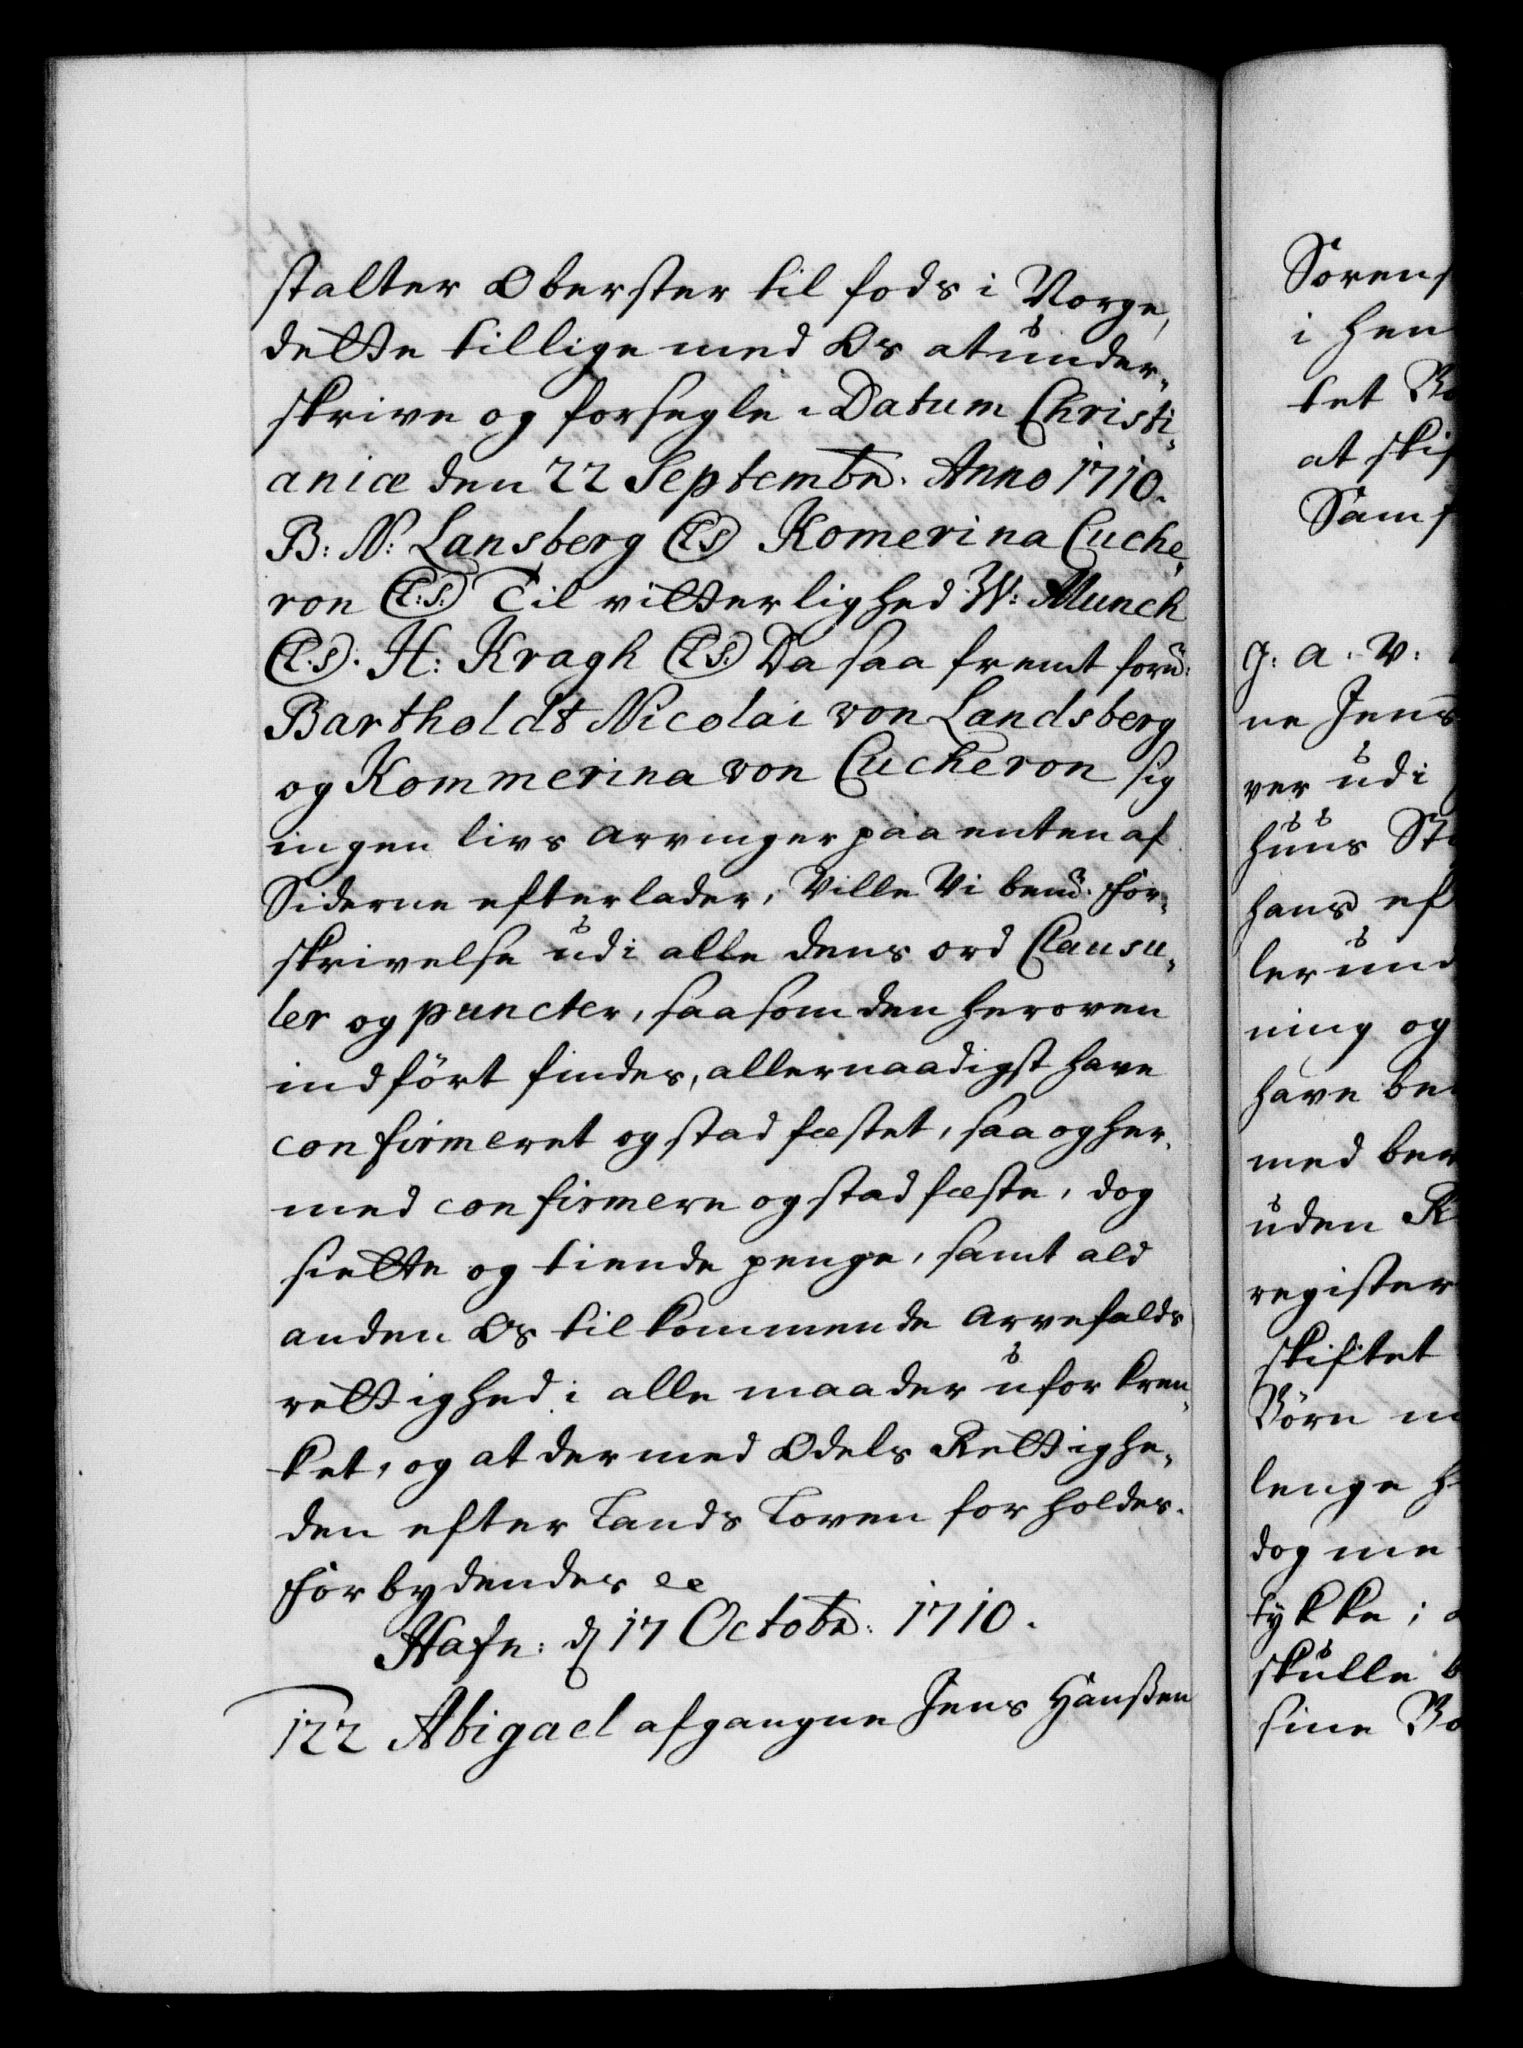 stalter Oberster til fods i Norge,
dette tillige med Os at under-
skrive og forsegle. Datum Christi-
aniæ den 22 Septembr. Anno 1710.
B: N: Lansberg (L.S) Komerina Cuche-
ron (L:S:) Til vitterlighed W: Munch
(L.S). H: Kragh (L.S.) Da saa fremt fornd:
Bartholdt Nicolai von Landsberg
og Kommerina von Cucheron sig
ingen livs arvinger paa enten af
Siderne efterlader, Ville Vi bemd. For-
skrivelse udi alle dens ord Clausu-
ler og puncter, saasom den heroven
indført findes, allernaadigst have
confirmeret og stadfæstet, saa og her-
med confirmere og stadfæste, dog
siette og tiende penge, samt ald
anden Os tilkommende arvefalds
rettighed i alle maader uforkren-
ket, og at dermed Odels Rettighe-
den efter Lands Loven forholdes.
Forbydendes ee
Hafn: d 17 Octobr: 1710.
122 Abigael afgangne Jens Hanßen
Sørens
i hen
tet
at skif
Samf
G: A. V:
ne Jens
ver udi
huus St
hans ef
ler und
ning og
have be
med ber
uden
register
skiftet
Børn m
lenge h
dog me
tykke;
skulle b
sine Bo